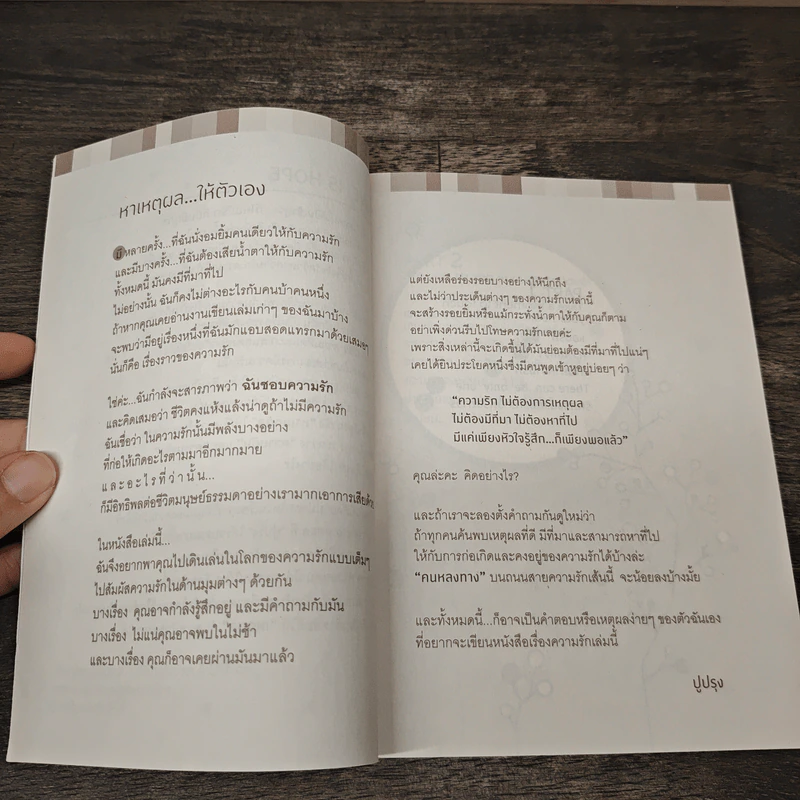 หาเหตุผล...ให้ตัวเอง
มีหลายครั้ง...ที่ฉันนั่งอมยิ้มคนเดียวให้กับความรัก
และมีบางครั้ง...ที่ฉันต้องเสียน้ำตาให้กับความรัก
ทั้งหมดนี้ มันคงมีที่มาที่ไป
ไม่อย่างนั้น ฉันก็คงไม่ต่างอะไรกับคนบ้าคนหนึ่ง
ถ้าหากคุณเคยอ่านงานเขียนเล่มเก่าๆ ของฉันมาบ้าง
จะพบว่ามีอยู่เรื่องหนึ่งที่ฉันมักแอบสอดแทรกมาด้วยเสมอๆ
นั่นก็คือ เรื่องราวของความรัก
ใช่ค่ะ...ฉันกำลังจะสารภาพว่า ฉันชอบความรัก
และคิดเสมอว่า ชีวิตคงแห้งแล้งน่าดูถ้าไม่มีความรัก
ฉันเชื่อว่า ในความรักนั้นมีพลังบางอย่าง
ที่ก่อให้เกิดอะไรตามมาอีกมากมาย
และอะไรที่ว่านั้น...
ก็มีอิทธิพลต่อชีวิตมนุษย์ธรรมดาอย่างเรามากเอาการเสียด้วย
ในหนังสือเล่มนี้...
ฉันจึงอยากพาคุณไปเดินเล่นในโลกของความรักแบบเต็มๆ
ไปสัมผัสความรักในด้านมุมต่างๆ ด้วยกัน
บางเรื่อง คุณอาจกำลังรู้สึกอยู่ และมีคำถามกับมัน
บางเรื่อง ไม่แน่คุณอาจพบในไม่ช้า
และบางเรื่อง คุณก็อาจเคยผ่านมันมาแล้ว
แต่ยังเหลือร่องรอยบางอย่างให้นึกถึง
และไม่ว่าประเด็นต่างๆ ของความรักเหล่านี้
จะสร้างรอยยิ้มหรือแม้กระทั่งน้ำตาให้กับคุณก็ตาม
อย่าเพิ่งด่วนรีบไปโทษความรักเลยค่ะ
เพราะสิ่งเหล่านี้จะเกิดขึ้นได้มันย่อมต้องมีที่มาที่ไปแน่ๆ
เคยได้ยินประโยคหนึ่งซึ่งมีคนพูดเข้าหูอยู่บ่อยๆ ว่า
“ความรัก ไม่ต้องการเหตุผล
ไม่ต้องมีที่มา ไม่ต้องหาที่ไป
มีแค่เพียงหัวใจรู้สึก...ก็เพียงพอแล้ว”
คุณล่ะคะ คิดอย่างไร?
และถ้าเราจะลองตั้งคำถามกันดูใหม่ว่า
ถ้าทุกคนค้นพบเหตุผลที่ดี มีที่มาและสามารถหาที่ไป
ให้กับการก่อเกิดและคงอยู่ของความรักได้บ้างล่ะ
“คนหลงทาง” บนถนนสายความรักเส้นนี้ จะน้อยลงบ้างมั้ย
และทั้งหมดนี้...ก็อาจเป็นคำตอบหรือเหตุผลง่ายๆ ของตัวฉันเอง
ที่อยากจะเขียนหนังสือเรื่องความรักเล่มนี้
ปูปรุง